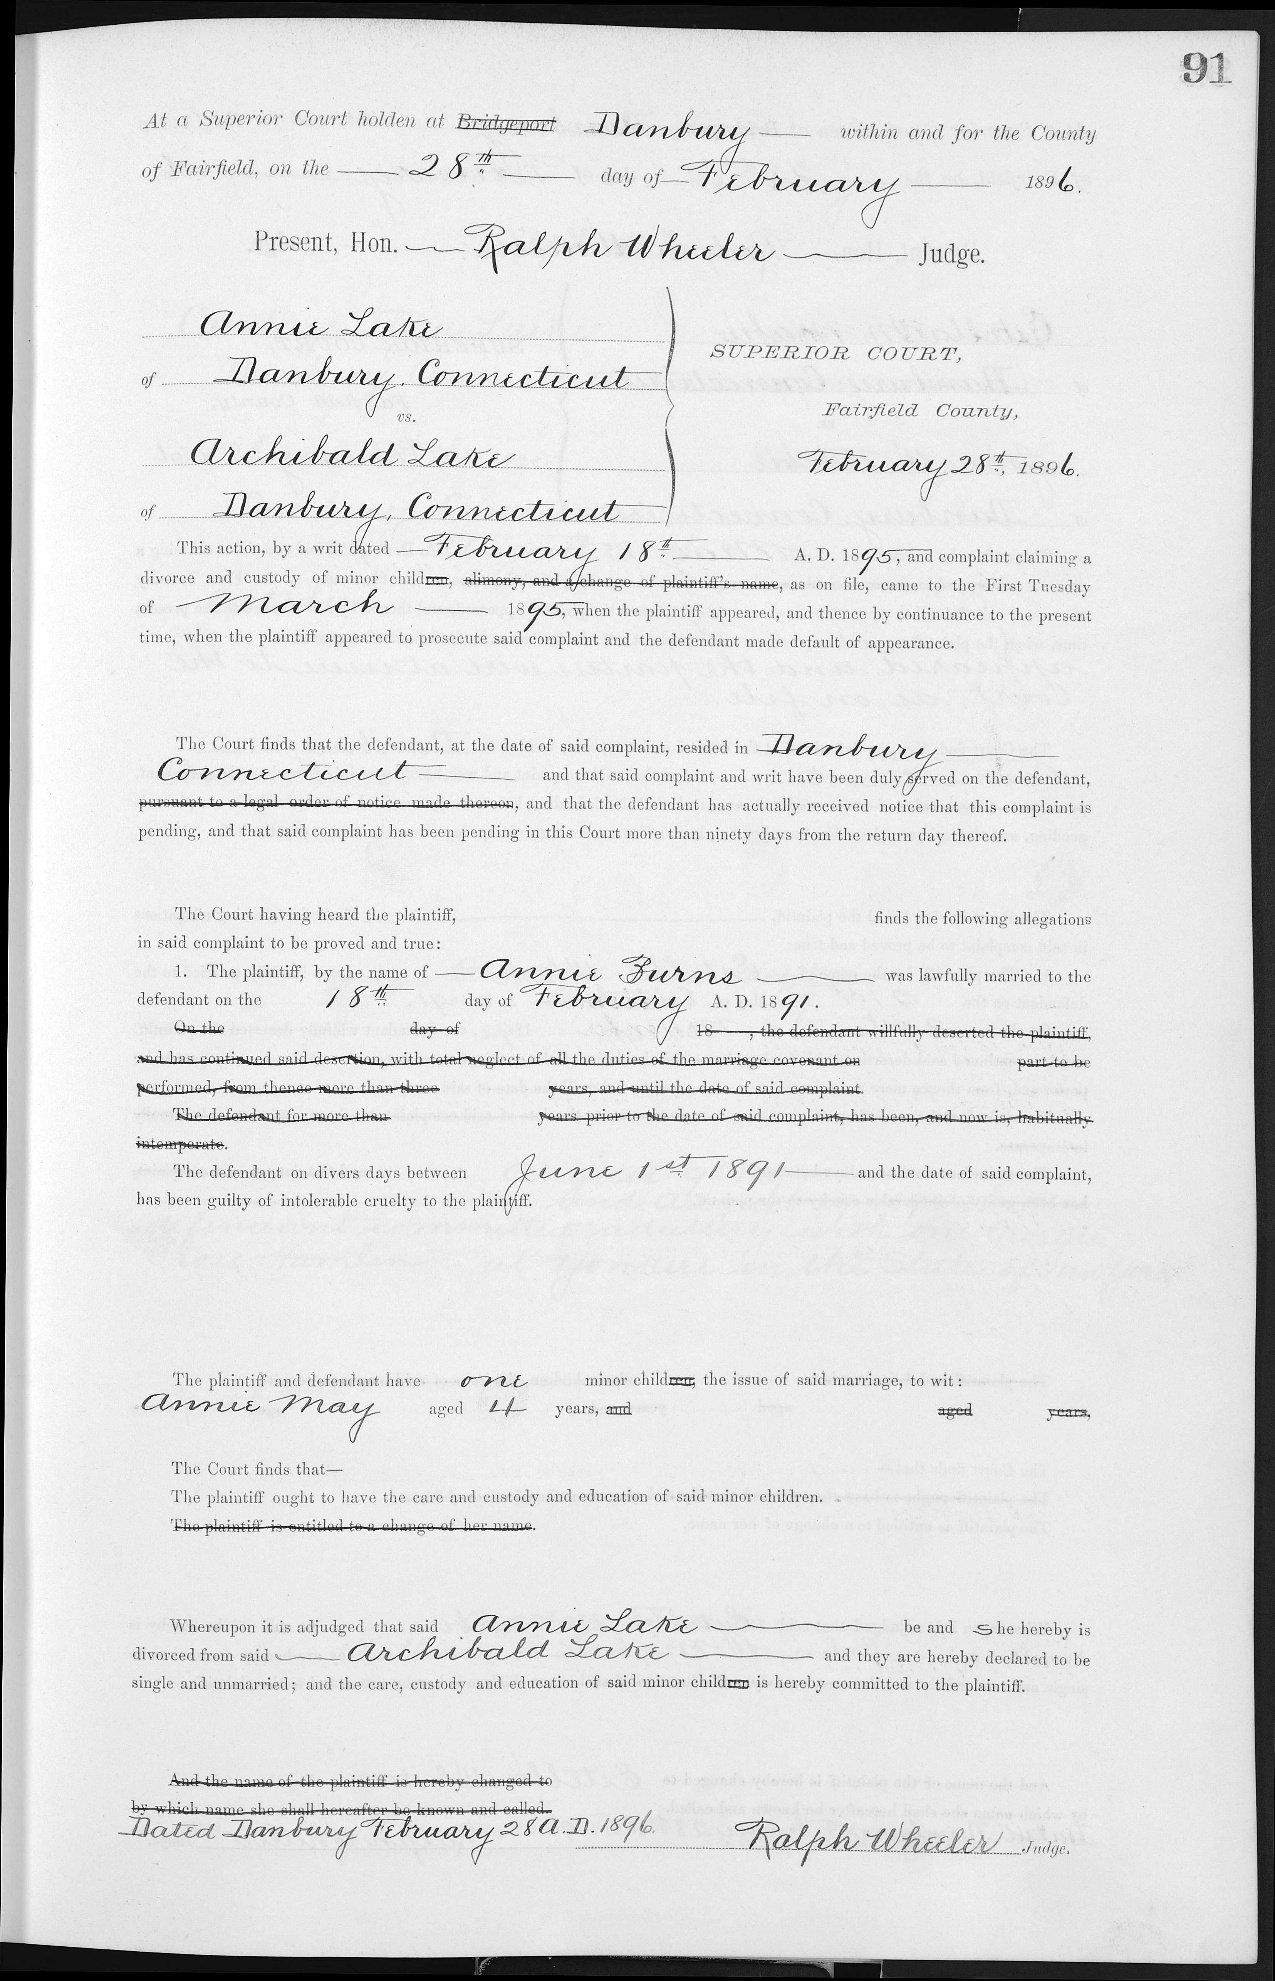 91
At a Superior Court holden at Bridgeport Danbury within and for the County
of Fairfield, on the 28th day of February 1896.
Present, Hon. Ralph Wheeler Judge.
Annie Lake
of Danbury, Connecticut
vs.
Archibald Lake
of Danbury, Connecticut
SUPERIOR COURT,
Fairfield County,
February 28th, 1896.
This action, by a writ dated February 18th A. D. 1895, and complaint claiming a
divorce and custody of minor children, alimony, and a change of plaintiff's name, as on file, came to the First Tuesday
of March 1895, when the plaintiff appeared, and thence by continuance to the present
time, when the plaintiff appeared to prosecute said complaint and the defendant made default of appearance.
The Court finds that the defendant, at the date of said complaint, resided in Danbury
Connecticut and that said complaint and writ have been duly served on the defendant,
pursuant to a legal order of notice made thereon, and that the defendant has actually received notice that this complaint is
pending, and that said complaint has been pending in this Court more than ninety days from the return day thereof.
The Court having heard the plaintiff, finds the following allegations
in said complaint to be proved and true:
1. The plaintiff, by the name of Annie Burns was lawfully married to the
defendant on the 18th day of February A. D. 1891.
On the day of 18 , the defendant willfully deserted the plaintiff,
and has continued said desertion, with total neglect of all the duties of the marriage covenant on part to be
performed, from thence more than three years, and until the date of said complaint.
The defendant for more than years prior to the date of said complaint, has been, and now is, habitually
intemperate.
The defendant on divers days between June 1st 1891 and the date of said complaint,
has been guilty of intolerable cruelty to the plaintiff.
The plaintiff and defendant have one minor children, the issue of said marriage, to wit:
Annie May aged 4 years, and aged years,
The Court finds that—
The plaintiff ought to have the care and custody and education of said minor children.
The plaintiff is entitled to a change of her name.
Whereupon it is adjudged that said Annie Lake be and She hereby is
divorced from said Archibald Lake and they are hereby declared to be
single and unmarried; and the care, custody and education of said minor children is hereby committed to the plaintiff.
And the name of the plaintiff is hereby changed to
by which name she shall hereafter be known and called.
Dated Danbury February 28 A. D. 1896.
Ralph Wheeler Judge.